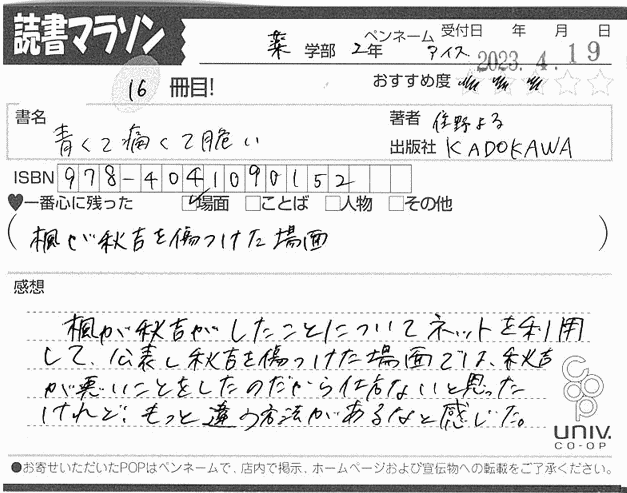 読書マラソン
薬 学部 2年 ペンネーム アイス 受付日 年 月 日
2023. 4. 19
16 冊目! おすすめ度
書名 青くて痛くて脆い
著者 住野よる
出版社 KADOKAWA
ISBN 978-4041090152
♥一番心に残った ☑場面 □ことば □人物 □その他
(楓が秋吉を傷つけた場面)
感想
楓が秋吉がしたことについてネットを利用
して、公表し秋吉を傷つけた場面では、秋吉
が悪いことをしたのだから仕方ないと思った
けれど、もっと違う方法があるなと感じた。
coop
UNIV.
CO-OP
●お寄せいただいたPOPはペンネームで、店内で掲示、ホームページおよび宣伝物への転載をご了承ください。